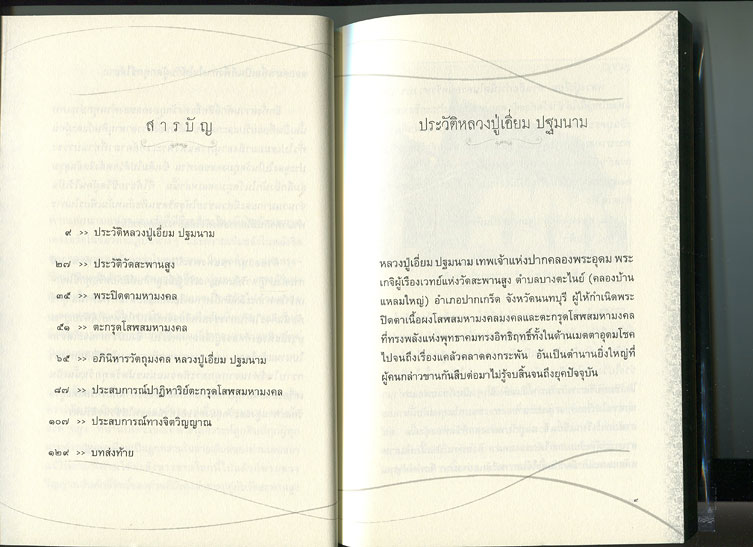 สารบัญ
๙ >> ประวัติหลวงปู่เอี่ยม ปฐมนาม
๒๗ >> ประวัติวัดสะพานสูง
๓๕ >> พระปิดตามหามงคล
๕๑ >> ตะกรุดโสฬสมหามงคล
๖๕ >> อภินิหารวัตถุมงคล หลวงปู่เอี่ยม ปฐมนาม
๘๗ >> ประสบการณ์ปาฏิหาริย์ตะกรุดโสฬสมหามงคล
๑๐๗ >> ประสบการณ์ทางจิตวิญญาณ
๑๒๙ >> บทส่งท้าย
ประวัติหลวงปู่เอี่ยม ปฐมนาม
หลวงปู่เอี่ยม ปฐมนาม เทพเจ้าแห่งปากคลองพระอุดม พระ
เกจิผู้เรืองเวทย์แห่งวัดสะพานสูง ตำบลบางตะไนย์ (คลองบ้าน
แหลมใหญ่) อำเภอปากเกร็ด จังหวัดนนทบุรี ผู้ให้กำเนิดพระ
ปิดตาเนื้อผงโสฬสมหามงคลและตะกรุดโสฬสมหามงคล
ที่ทรงพลังแห่งพุทธาคมทรงอิทธิฤทธิ์ทั้งในด้านเมตตาอุดมโชค
ไปจนถึงเรื่องแคล้วคลาดคงกระพัน อันเป็นตำนานยิ่งใหญ่ที่
ผู้คนกล่าวขานกันสืบต่อมาไม่รู้จบสิ้นจนถึงยุคปัจจุบัน
๙